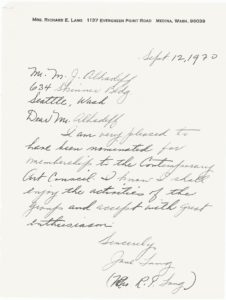 Mrs. Richard E. Lang 1137 Evergreen Point Road Medina, Wash. 98039
Sept 12, 1970
Mr. M. J. Alhadeff
634 Skinner Bldg
Seattle, Wash
Dear Mr. Alhadeff
I am very pleased to
have been nominated for
membership to the Contemporary
Art Council. I know I shall
enjoy the activities of the
group and accept with great
enthusiasm
Sincerely
Jane Lang
(Mrs R. E. Lang)